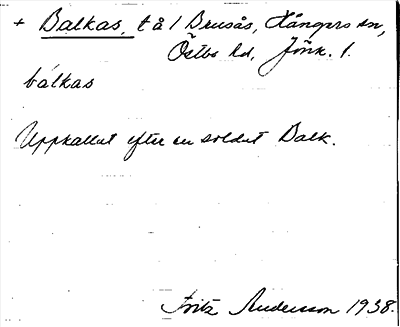 + Balkas, t å 1 Brusås, Kångers sn,
Östbo hd, Jönk. l.
bálkas
Uppkallat efter en soldat Balk.
Fritz Andersson 1938.